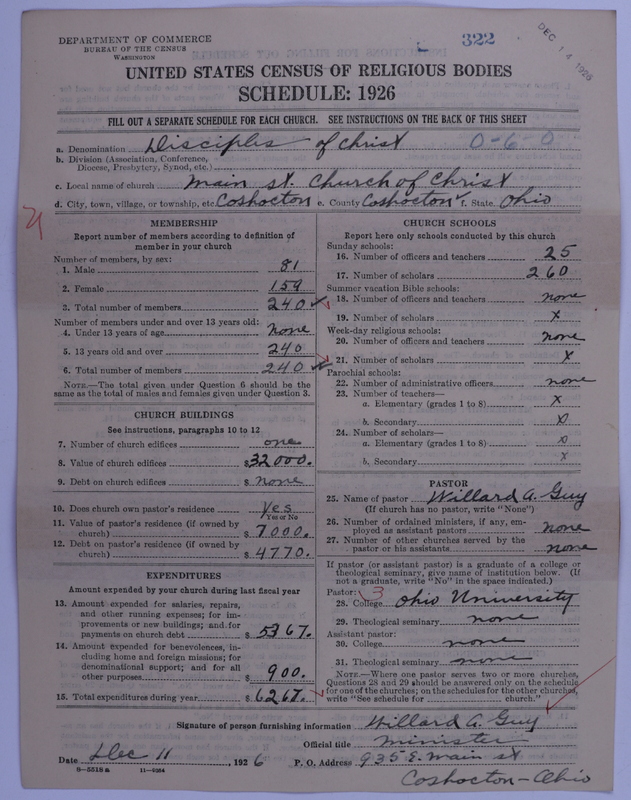 DEPARTMENT OF COMMERCE
BUREAU OF THE CENSUS
WASHINGTON
322
DEC 14 1926
UNITED STATES CENSUS OF RELIGIOUS BODIES
SCHEDULE: 1926
FILL OUT A SEPARATE SCHEDULE FOR EACH CHURCH. SEE INSTRUCTIONS ON THE BACK OF THIS SHEET
a. Denomination Disciples of Christ 0-6-0
b. Division (Association, Conference,
Diocese, Presbytery, Synod, etc.)
c. Local name of church Main st. Church of Christ
d. City, town, village, or township, etc. Coshocton e. County Coshocton f. State Ohio
MEMBERSHIP
Report number of members according to definition of
member in your church
Number of members, by sex:
1. Male 81
2. Female 159
3. Total number of members 240
Number of members under and over 13 years old:
4. Under 13 years of age none
5. 13 years old and over 240
6. Total number of members 240
NOTE.—The total given under Question 6 should be the
same as the total of males and females given under Question 3.
CHURCH BUILDINGS
See instructions, paragraphs 10 to 12
7. Number of church edifices one
8. Value of church edifices $32000.
9. Debt on church edifices $ none
10. Does church own pastor's residence Yes
Yes or No
11. Value of pastor's residence (if owned by
church) $ 7000.
12. Debt on pastor's residence (if owned by
church) $ 4770.
EXPENDITURES
Amount expended by your church during last fiscal year
13. Amount expended for salaries, repairs,
and other running expenses; for im-
provements or new buildings; and for
payments on church debt $ 5367.
14. Amount expended for benevolences, in-
cluding home and foreign missions; for
denominational support; and for all
other purposes $ 900.
15. Total expenditures during year $ 6267.
CHURCH SCHOOLS
Report here only schools conducted by this church
Sunday schools:
16. Number of officers and teachers 25
17. Number of scholars 260
Summer vacation Bible schools:
18. Number of officers and teachers none
19. Number of scholars x
Week-day religious schools:
20. Number of officers and teachers none
21. Number of scholars x
Parochial schools:
22. Number of administrative officers none
23. Number of teachers—
a. Elementary (grades 1 to 8) x
b. Secondary x
24. Number of scholars—
a. Elementary (grades 1 to 8) x
b. Secondary x
PASTOR
25. Name of pastor Willard A. Guy
(If church has no pastor, write "None")
26. Number of ordained ministers, if any, em-
ployed as assistant pastors none
27. Number of other churches served by the
pastor or his assistants none
If pastor (or assistant pastor) is a graduate of a college or
theological seminary, give name of institution below. (If
not a graduate, write "No" in the space indicated.)
Pastor: 3
28. College Ohio University
29. Theological seminary none
Assistant pastor:
30. College none
31. Theological seminary none
NOTE.—Where one pastor serves two or more churches,
Questions 28 and 29 should be answered only on the schedule
for one of the churches; on the schedules for the other churches,
write "See schedule for church."
Signature of person furnishing information Willard A. Guy
Official title Minister
Date Dec 11, 1926 P. O. Address 935 E. Main st
8-5518 a 11-6254
Coshocton-Ohio